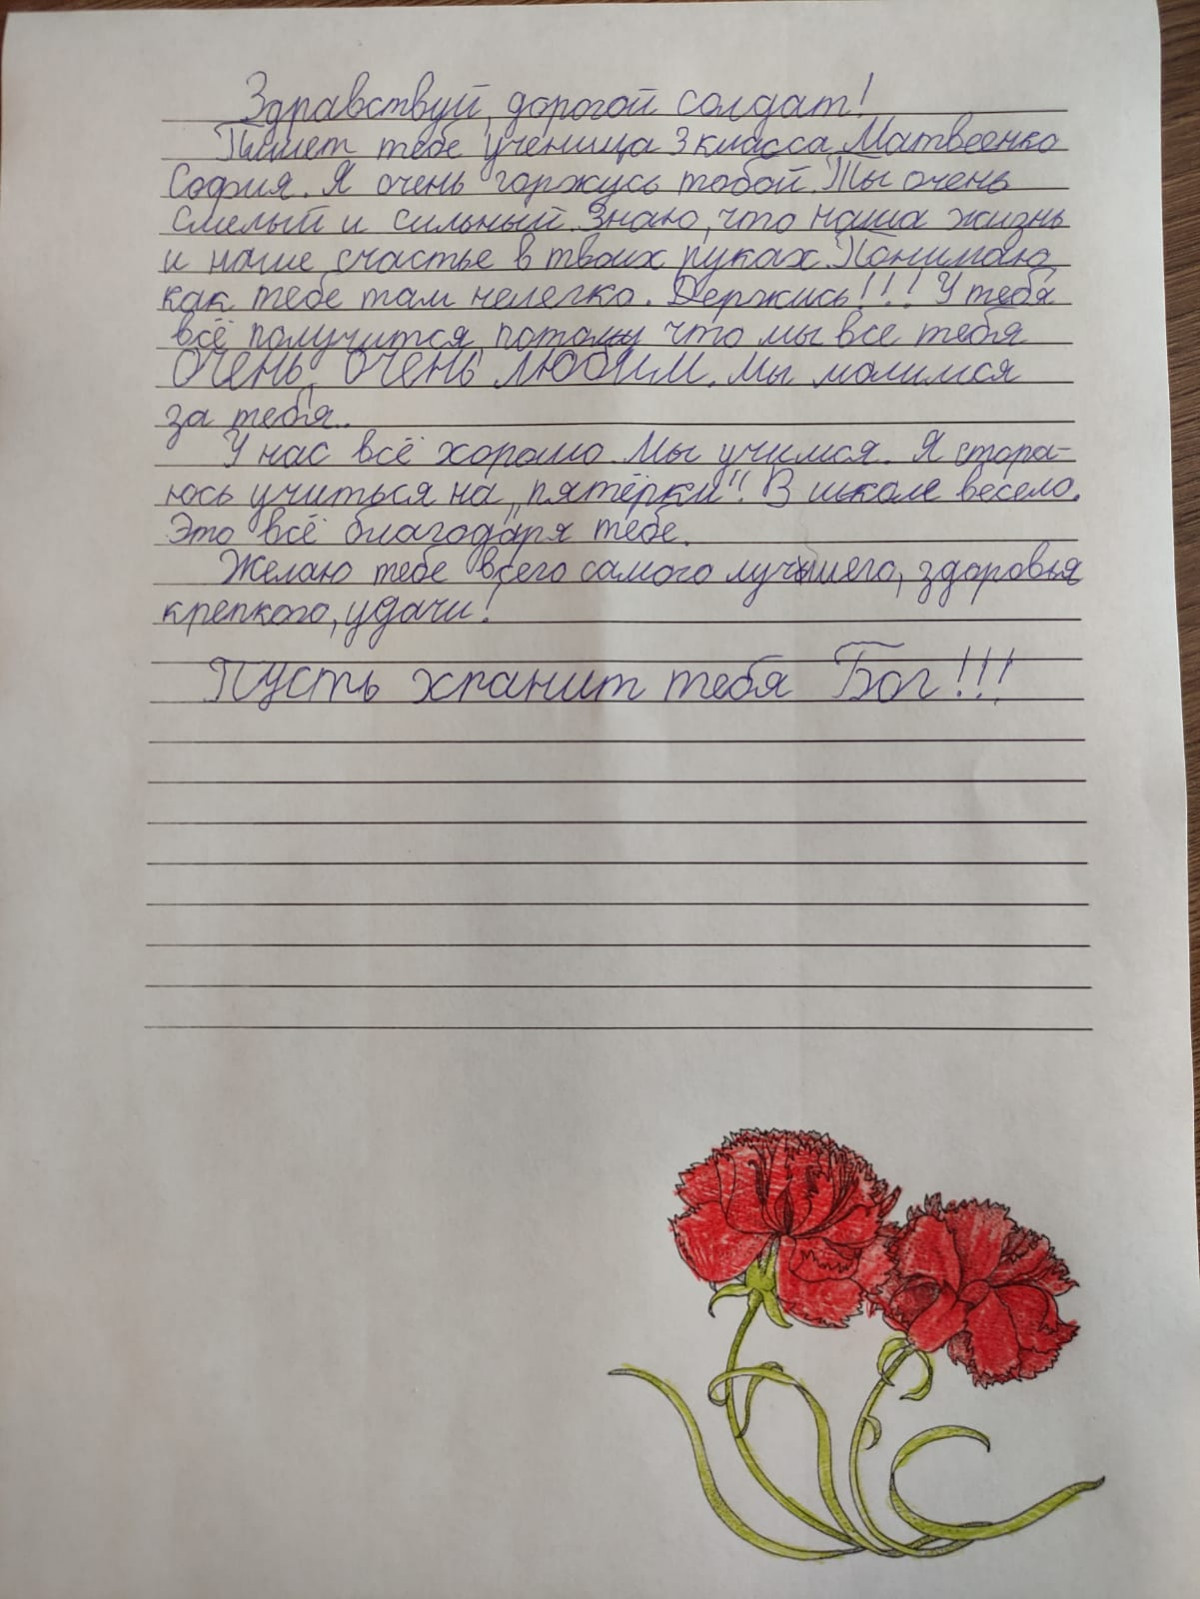 Здравствуй, дорогой солдат!
Пишет тебе ученица 3 класса Матвеенко
София. Я очень горжусь тобой. Ты очень
смелый и сильный. Знаю, что наша жизнь
и наше счастье в твоих руках. Понимаю,
как тебе там нелегко. Держись!!! У тебя
всё получится, потому что мы все тебя
ОЧЕНЬ, ОЧЕНЬ ЛЮБИМ. Мы молимся
за тебя..
У нас всё хорошо. Мы учимся. Я стора-
юсь учиться на „пятёрки". В школе весело.
Это всё благодаря тебе.
Желаю тебе всего самого лучшего, здоровья
крепкого, удачи!
Пусть хранит тебя Бог!!!